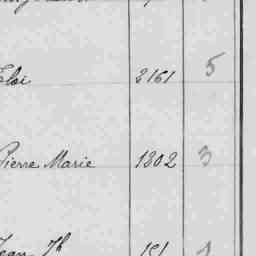 Eloi 2161 5
Pierre Marie 1802 3
Jean Jh 151